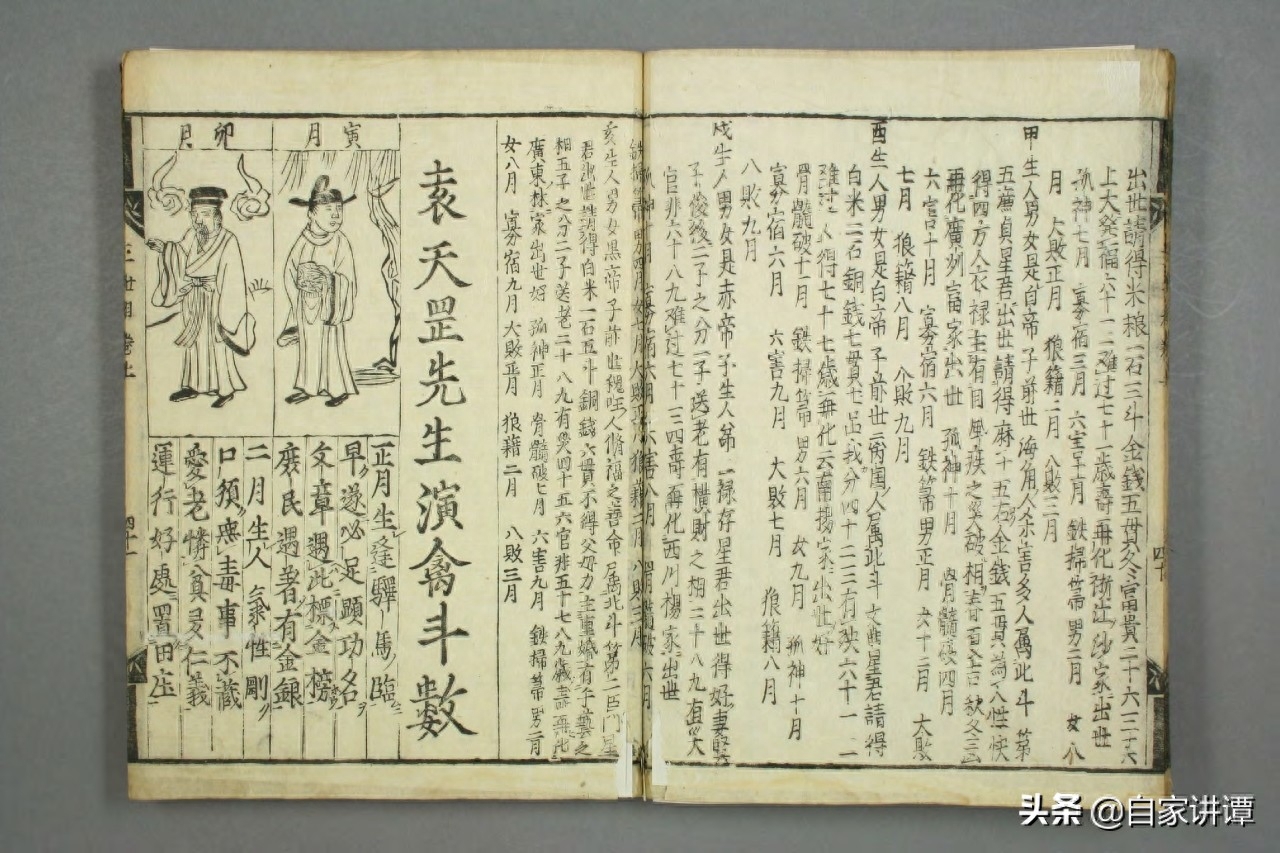 出世請得米粮一石三斗金錢五毋久冬富貴二十六三十六
上大発福六十一二难过七十一歳壽再化浙江沙家出世
孤神七月 寡宿三月 六害十月 鉄掃箒男二月 女八
月 大敗正月 狼籍二月 八敗三月
甲生人男女是白帝子前世海角人杀害多人属此斗第
五廉貞星君出世請得麻十五石金錢五貫為人性快
得四方人衣禄主有目風疾之
再化廣州富家出世 孤神十月
六害十月 寡宿六月 鉄箒男正月 女十二月 大敗
七月 狼籍八月 八敗九月
酉生人男女是白帝子前世兩国人属此斗文曲星君請得
白米二石銅錢七貫七 四十二三有殃六十一二
难过 人得七十七歳再化云南楊家出世好
骨髓破十月 鉄掃箒男六月 女九月 孤神十月
寡宿六月 六害九月 大敗七月 狼籍八月
八敗九月
戌生人男女是赤帝子生人弟一禄存星君出世得好妻
子俊後二子之分一子送老有横財之相三十八九有大
官非六十八九难过七十三四壽再化西川楊家出世
孤神十月 寡宿六月 六害八月 骨髓破六月
鉄掃箒男四月女七月大敗正月狼籍三月 八敗三月
亥生人男女黒帝子前世 人脩福之善命属北斗第二巨門星
君出世請得白米一石五斗銅錢六貫不得父母力主重婚有手藝之
相五子之分二子送老二十八九有災四十五六官非五十七八九歳壽再化
廣東林家出世好 孤神正月 骨髓破七月 六害九月 鉄掃箒男二月
女八月 寡宿九月 大敗正月 狼籍二月 八敗三月
袁天罡先生演禽斗數
寅月
卯月
正月生逢驛馬臨
早遂必足顕功名
文章遇此標金榜
庶民遇着有金銀
二月生人氣性剛
口須無毒事不藏
愛老憐貧多仁義
運行好處置田庄
三世相卷上
四十一
四十
头条 @自家讲谭